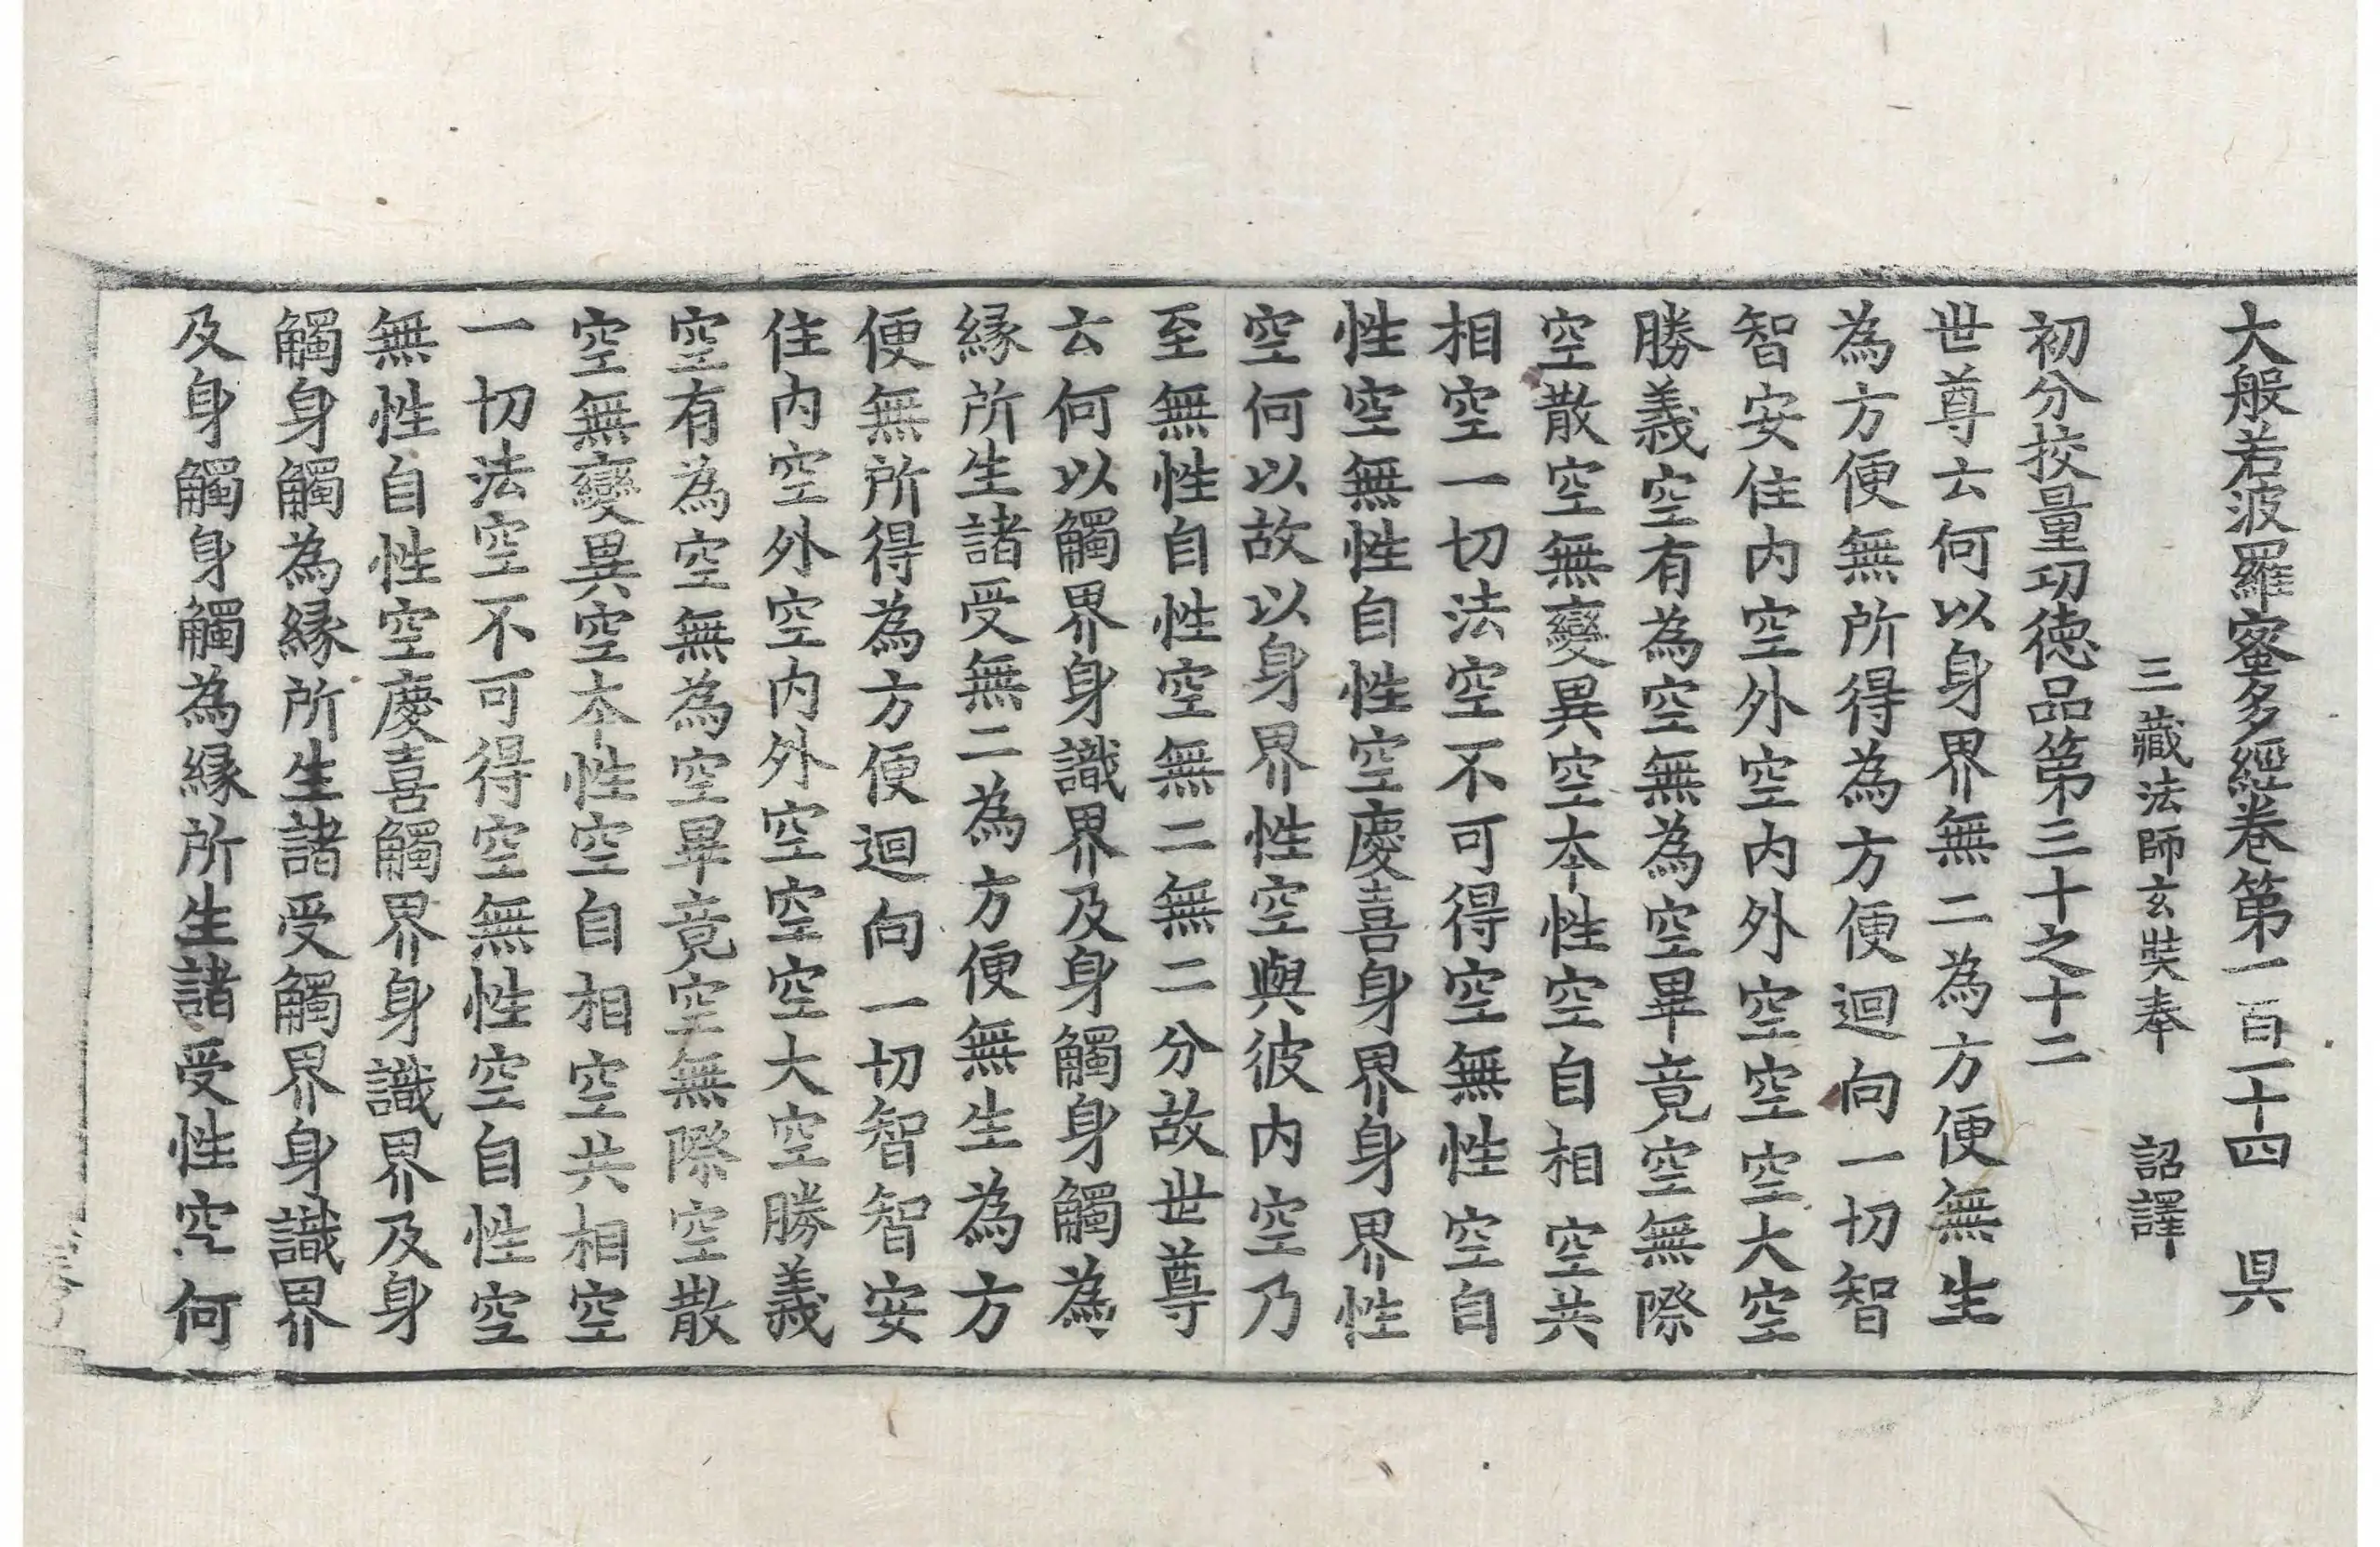 大般若波羅蜜多經卷第一百二十四　昃
三藏法師玄奘奉　詔譯
初分挍量功德品第三十之十二
世尊云何以身界無二為方便無生
為方便無所得為方便迴向一切智
智安住内空外空内外空空空大空
勝義空有為空無為空畢竟空無際
空散空無變異空本性空自相空共
相空一切法空不可得空無性空自
性空無性自性空慶喜身界身界性
空何以故以身界性空與彼内空乃
至無性自性空無二無二分故世尊
云何以觸界身識界及身觸身觸為
縁所生諸受無二為方便無生為方
便無所得為方便迴向一切智智安
住内空外空内外空空空大空勝義
空有為空無為空畢竟空無際空散
空無變異空本性空自相空共相空
一切法空不可得空無性空自性空
無性自性空慶喜觸界身識界及身
觸身觸為縁所生諸受觸界身識界
及身觸身觸為縁所生諸受性空何